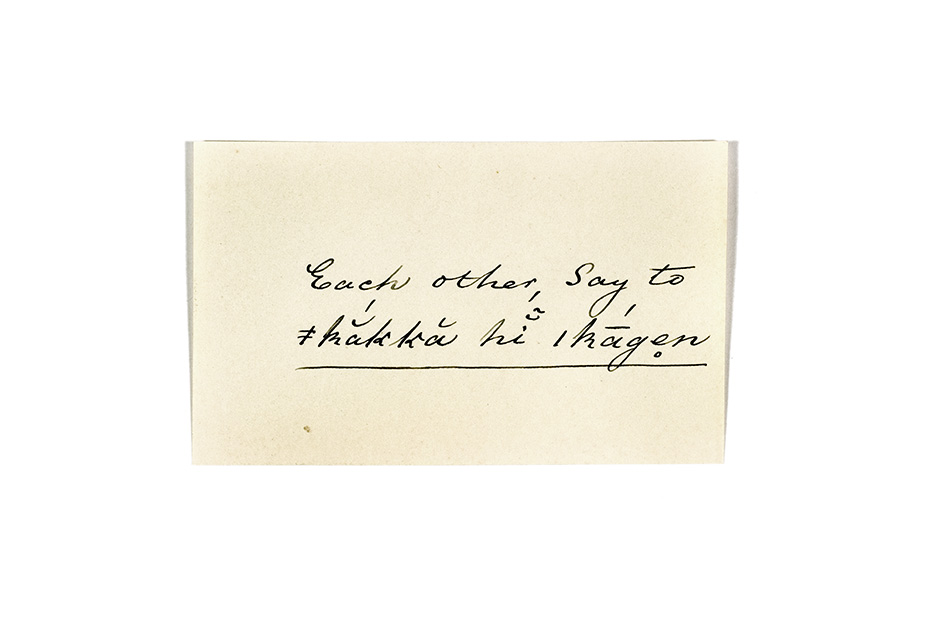 Each other, Say to
ǂkắkkă hĭ̃́ ǀkā́gen̥